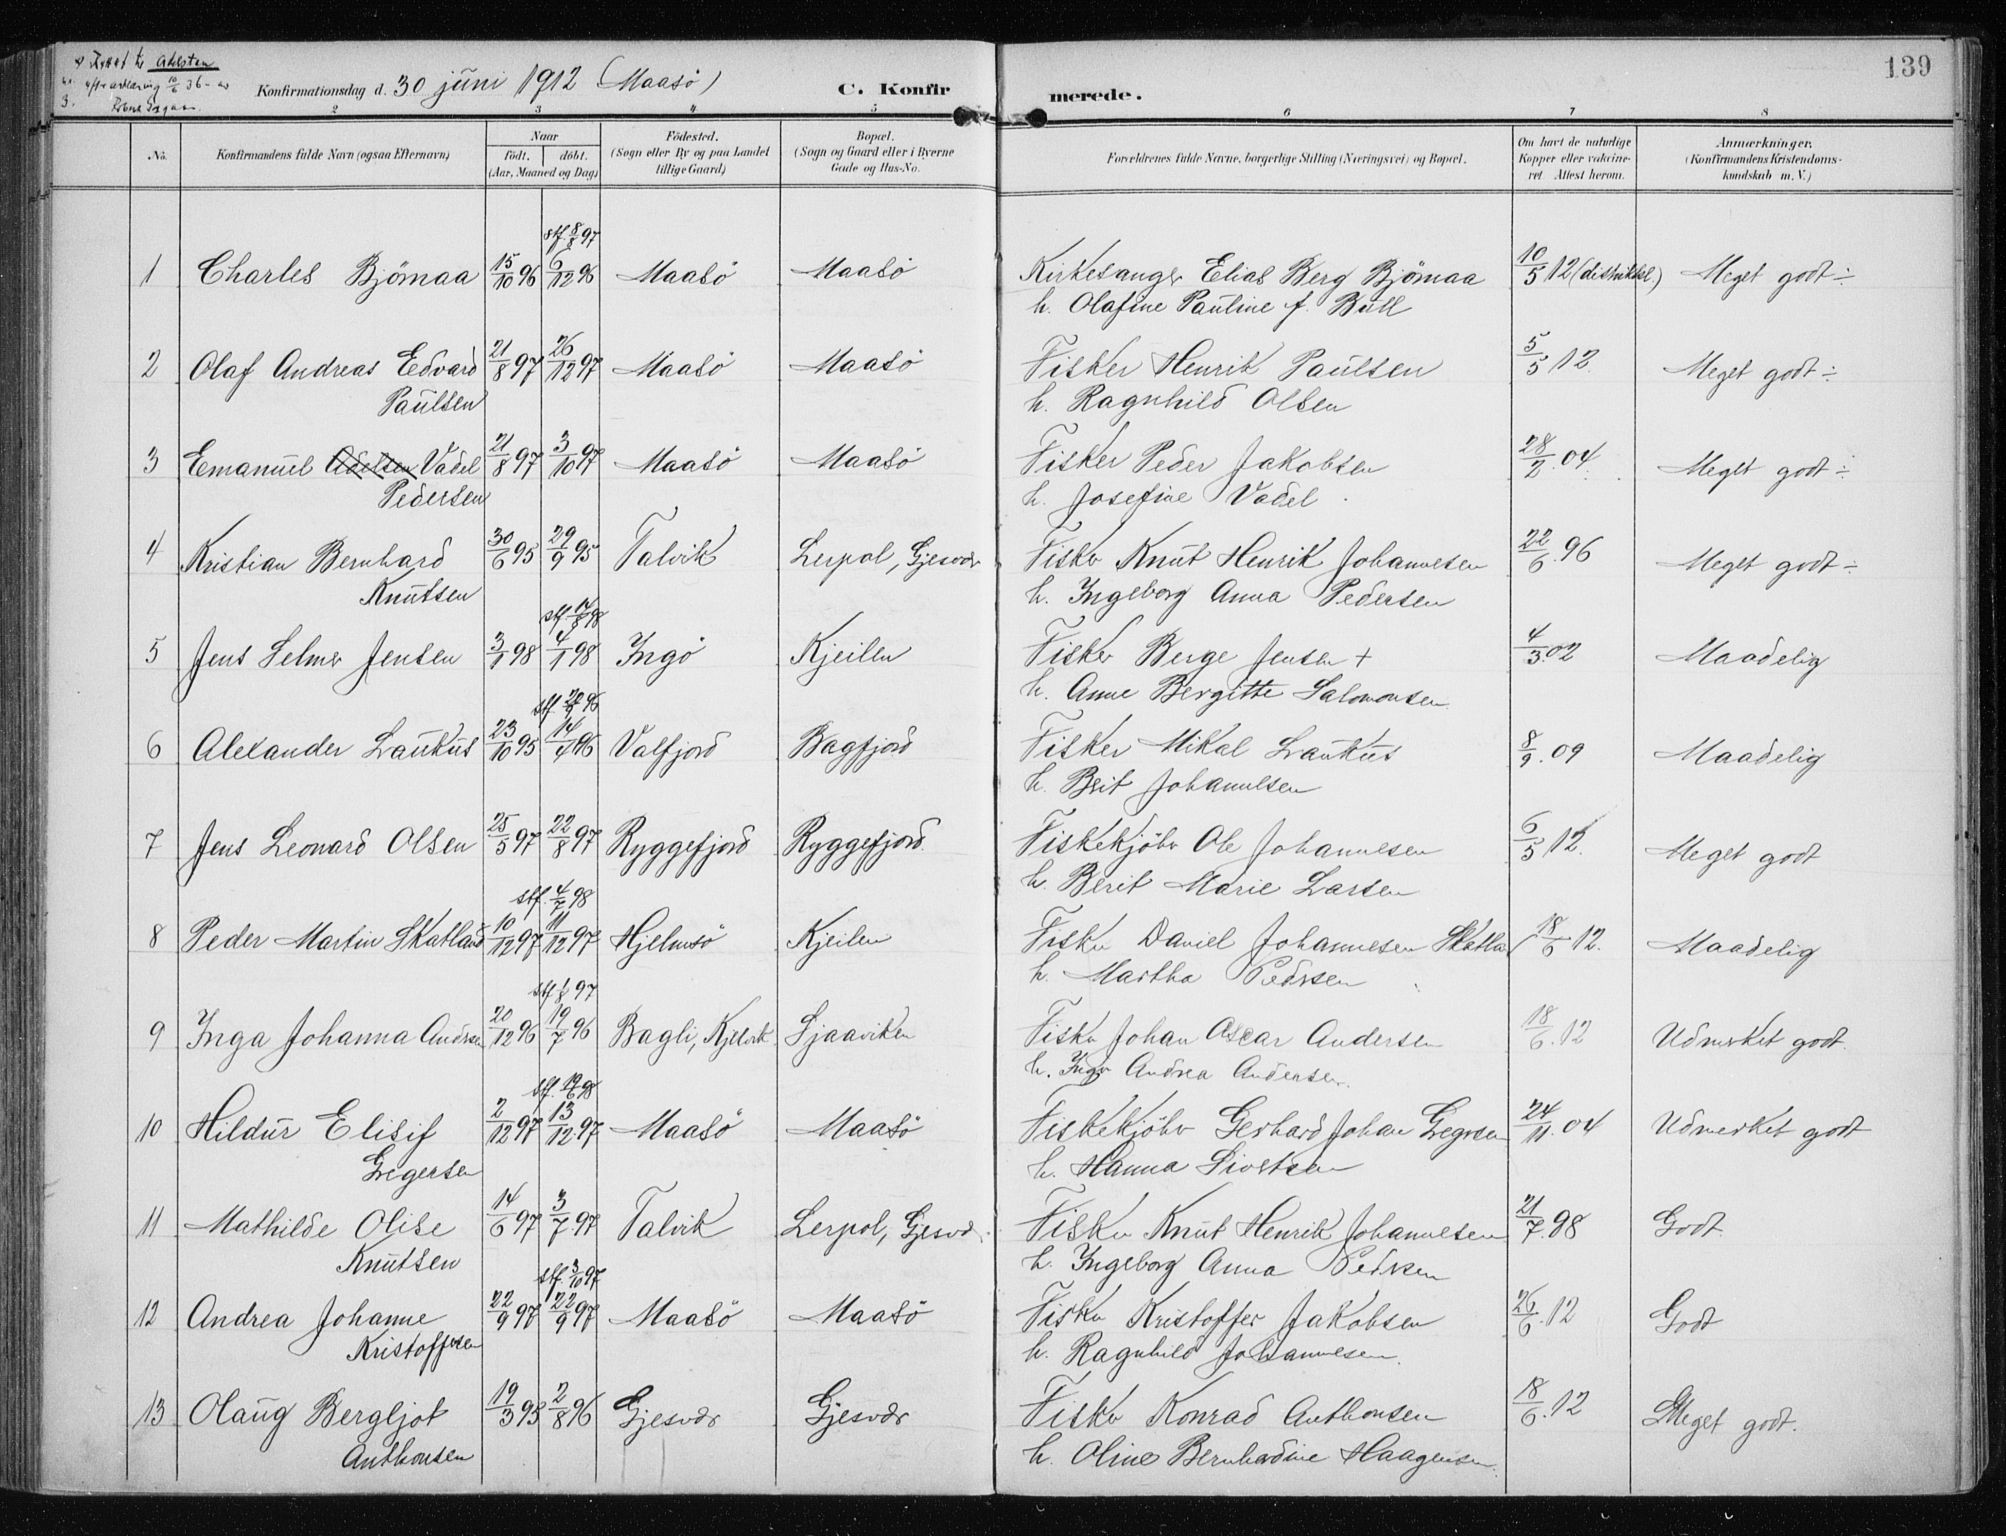 139
Rettet til Adelsten
nr. 3. efter erklæring 10/6 36
Konfirmationsdag d. 30 juni 1912 (Maasö)
C. Konfirmerede.
2 3 4 5 6 7 8
No.
Konfirmandens fulde Navn (ogsaa Efternavn)
Naar
födt. döbt.
(Aar, Maaned og Dag)
Födested.
(Sogn eller By og paa Landet
tillige Gaard)
Bopæl.
(Sogn og Gaard eller i Byerne
Gade og Hus-No.
Forældrenes fulde Navne, borgerlige Stilling (Næringsvei) og Bopæl.
Om havt de naturlige
Kopper eller vaccine-
ret Attest herom.
Anmærkninger.
(Konfirmandens Kristendoms-
kundskab m. V.)
stf. 8/8 97
1 Charles Bjömaa 15/10 96 6/12 96 Maasö Maasö Kirkesanger Elias Berg Bjömaa 10/5 12 (distriktsl.) Meget godt ÷
h. Olafine Pauline f. Bull
2 Olaf Andreas Edvard 21/8 97 26/12 97 Maasö Maasö Fisker Henrik Paulsen 5/5 12. Meget godt ÷
Paulsen h. Ragnhild Olsen
3 Emanuel Adelsen Vadel 21/8 97 3/10 97 Maasö Maasö Fisker Peder Jakobsen 28/2 04. Meget godt ÷
Pedersen h. Josefine Vadel
4 Kristian Bernhard 30/6 95 29/9 95 Talvik Lerpol, Gjesvær Fisker Knut Henrik Johannesen 22/6 96 Meget godt ÷
Knutsen h. Ingeborg Anna Pedersen
5 Jens Selmer Jensen 3/1 98 4/1 98 Ingö Kjeilen Fisker Berge Jensen + 4/3 02 Maadelig
h. Anne Bergitte Salomonsen
6 Alexander Laukus 23/10 95 14/4 96 Valfjord Bagfjord Fisker Mikal Laukus 8/9. 09 Maadelig
h. Brit Johannesen
7 Jens Leonard Olsen 25/5 97 22/8 97 Ryggefjord Ryggefjord. Fiskekjöber Ole Johannesen 6/5 12. Meget godt
h. Berit Marie Larsen
stf. 4/7 98
8 Peder Martin Skatland 10/12 97 11/12 97 Hjelmsö Kjeilen Fisker Daniel Johannesen 18/6 12. Maadelig
h. Martha Pedersen
9 Inga Johanna Andrsen 20/12 96 19/7 96 Bagli, Kjelvik Sjaaviken Fisker Johan Oscar Andersen 18/6. 12 Udmerket godt.
h. Inger Andrea Andersen.
10 Hildur Elisif 2/12 97 13/12 97 Maasö Maasö Fiskekjöber Gerhard Johan Gregersen 24/11. 04 Udmerket godt
Gregersen h. Hanna Sivertsen
11 Mathilde Olise 14/6 97 3/7 97 Talvik Lerpol, Gjesvær. Fisker Knut Henrik Johannesen 21/7. 98 Godt.
Knutsen h. Ingeborg Anna Pedersen
stf. 3/10 97
12 Andrea Johanne 22/9 97 22/9 97 Maasö Maasö Fisker Kristoffer Jakobsen 26/6. 12 Godt
Kristoffersen h. Ragnhild Johannesen.
13 Olaug Bergljot 19/3 95 2/8 96 Gjesvær Gjesvær Fisker Konrad Anthonsen 18/6. 12 Meget godt.
Anthonsen h. Oline Bernhardine Haagensen